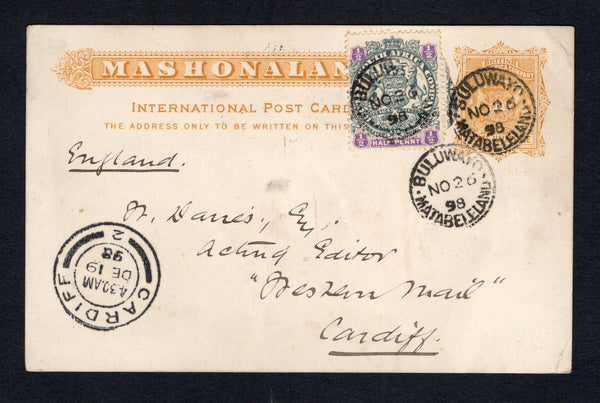 MASHONALAN
INTERNATIONAL POST CARD
THE ADDRESS ONLY TO BE WRITTEN ON THIS
½ SOUTH AFRICA COMPANY ½
½ HALF PENNY ½
BRITISH
BULUWAYO
NO 26
98
MATABELELAND
BULUWAYO
NO 26
98
MATABELELAND
BULUWAYO
NO 26
98
England.
W. Davies, Esq.
Acting Editor
"Western Mail"
Cardiff.
CARDIFF
4.30AM
DE 19
98
2